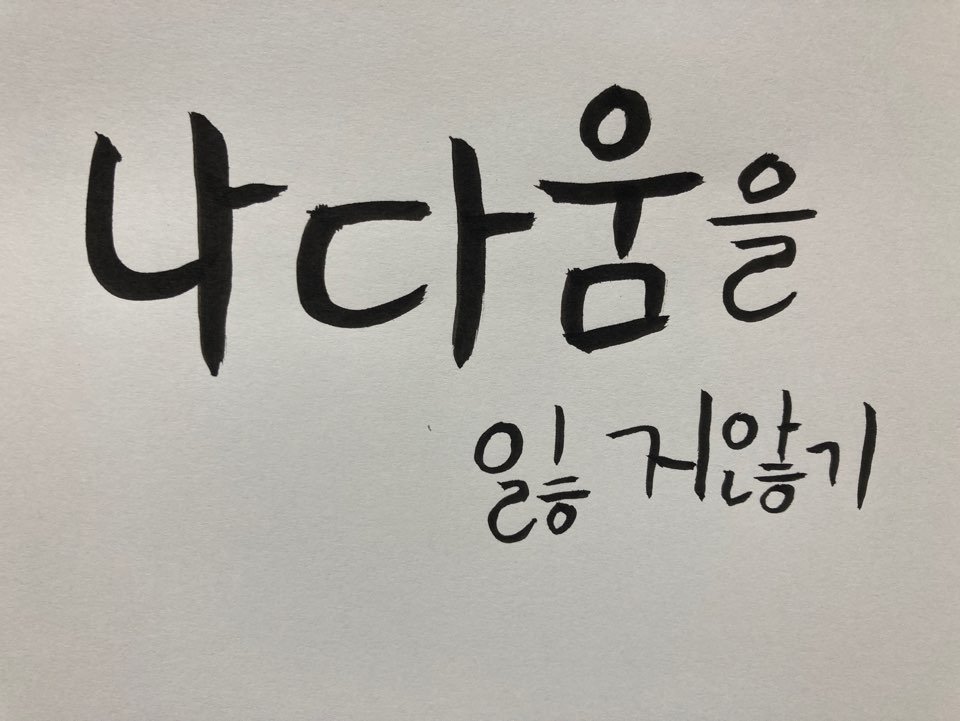 나다움을
잃지않기